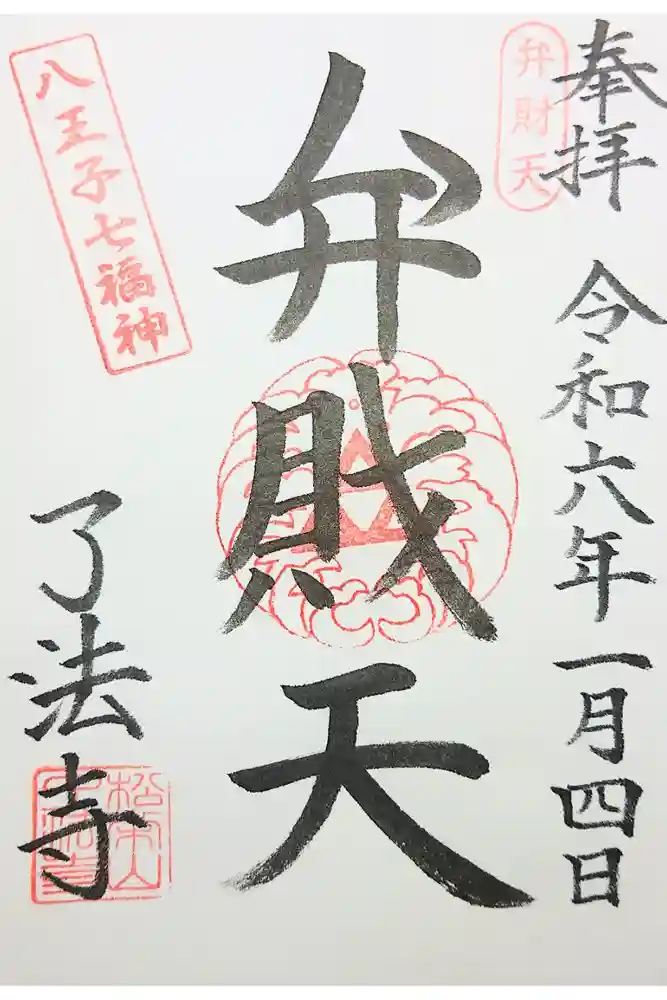 奉拝
令和六年一月四日
弁財天
弁財天
八王子七福神
了法寺
松栄山
了法寺